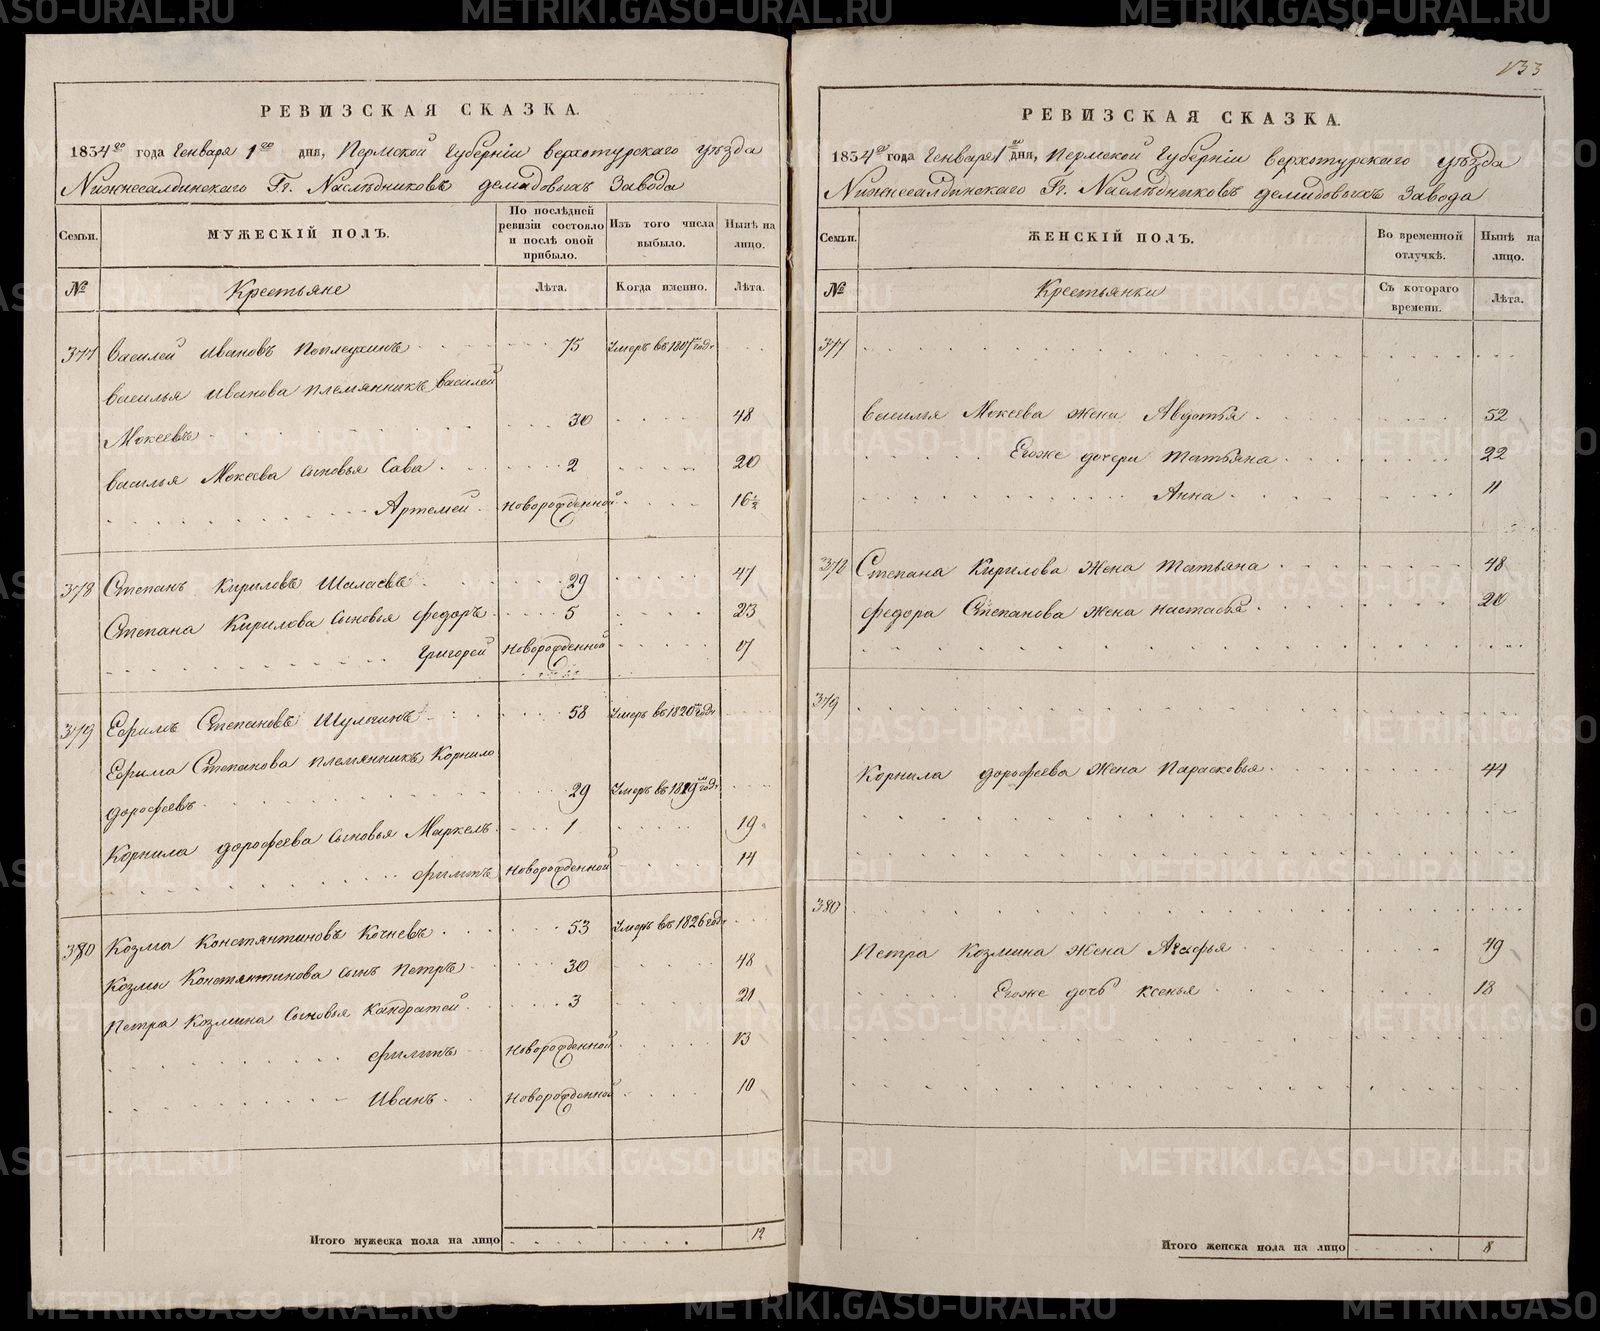 РЕВИЗСКАЯ СКАЗКА.
1834го года Генваря 1го дня, Пермской Губернiи Верхотурскаго уѣзда
Нижнесалдинскаго Гг. Наслѣдниковъ Демидовыхъ Завода
Семьи.
МУЖЕСКIЙ ПОЛЪ.
По послѣдней ревизiи состояло и послѣ оной прибыло.
Изъ того числа выбыло.
Нынѣ на лицо.
№
Крестьяне
Лѣта.
Когда именно.
Лѣта.
377 Василей Ивановъ 75 Умеръ въ 1807м годе
Василья Иванова племянникъ Василей
Мокеевъ 30 48
Василья Мокеева сыновья Сава 2 20
Артемей Новорожденной 16½
378 Степанъ Кириловъ Шалаевъ 29 47
Степана Кирилова сыновья Федоръ 5 23
Григорей Новорожденной 17
379 Ефимъ Степановъ Шулгинъ 58 Умеръ въ 1820м годе
Ефима Степанова племянникъ Корнило
Дорофеевъ 29 Умеръ въ 1819м годе
Корнила Дорофеева сыновья Маркелъ 1 19
Филипъ Новорожденной 14
380 Козма Констянтиновъ Кочневъ 53 Умеръ въ 1826 годе
Козмы Констянтинова сынъ Петръ 30 48
Петра Козмина сыновья Кандратей 3 21
Филипъ Новорожденной 13
Иванъ Новорожденной 10
Итого мужеска пола на лицо 12
133
РЕВИЗСКАЯ СКАЗКА.
1834го года Генваря 1го дня, Пермской Губернiи Верхотурскаго уѣзда
Нижнесалдинскаго Гг. Наслѣдниковъ Демидовыхъ Завода
Семьи.
ЖЕНСКIЙ ПОЛЪ.
Во временной отлучкѣ.
Нынѣ на лицо.
№
Крестьянки
Съ котораго времени.
Лѣта.
377
Василья Мокеева жена Авдотья 52
Егоже дочери Татьяна 22
Анна 11
378 Степана Кирилова жена Татьяна 48
Федора Степанова жена Настасья 20
379
Корнила Дорофеева жена Парасковья 44
380
Петра Козмина жена Агафья 49
Егоже дочь Ксенья 18
Итого женска пола на лицо 8
METRIKI.GASO-URAL.RU